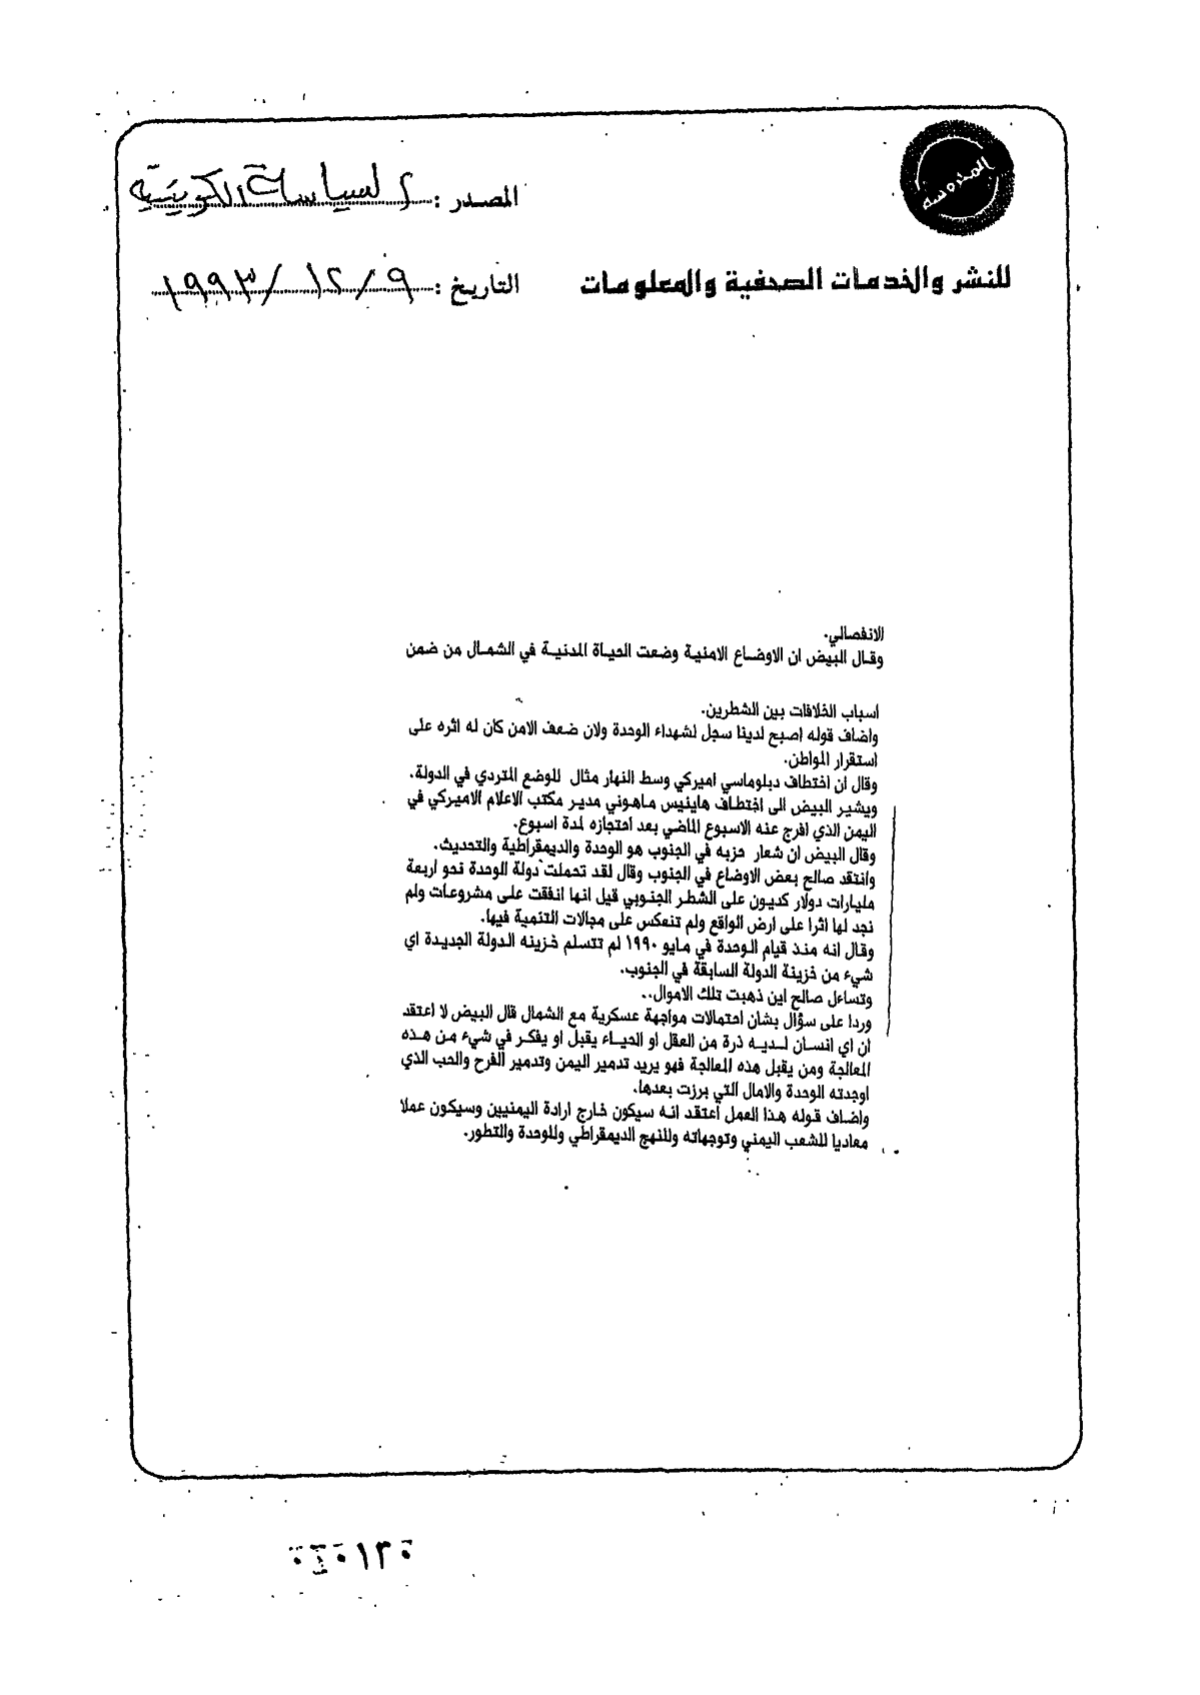 المحروسة
المصدر : السياسة الكويتية
للنشر والخدمات الصحفية والمعلومات
التاريخ : ٩ / ١٢ / ١٩٩٣
الانفصالي.
وقال البيض ان الاوضاع الامنية وضعت الحياة المدنية في الشمال من ضمن
اسباب الخلافات بين الشطرين.
واضاف قوله اصبح لدينا سجل لشهداء الوحدة ولان ضعف الامن كان له اثره على
استقرار المواطن.
وقال ان اختطاف دبلوماسي اميركي وسط النهار مثال للوضع المتردي في الدولة.
ويشير البيض الى اختطاف هاينيس ماهوني مدير مكتب الاعلام الاميركي في
اليمن الذي افرج عنه الاسبوع الماضي بعد احتجازه لمدة اسبوع.
وقال البيض ان شعار حزبه في الجنوب هو الوحدة والديمقراطية والتحديث.
وانتقد صالح بعض الاوضاع في الجنوب وقال لقد تحملت دولة الوحدة نحو اربعة
مليارات دولار كديون على الشطر الجنوبي قيل انها انفقت على مشروعات ولم
نجد لها اثرا على ارض الواقع ولم تنعكس على مجالات التنمية فيها.
وقال انه منذ قيام الوحدة في مايو ١٩٩٠ لم تتسلم خزينه الدولة الجديدة اي
شيء من خزينة الدولة السابقة في الجنوب.
وتساءل صالح اين ذهبت تلك الاموال..
وردا على سؤال بشان احتمالات مواجهة عسكرية مع الشمال قال البيض لا اعتقد
ان اي انسان لديه ذرة من العقل او الحياء يقبل او يفكر في شيء من هذه
المعالجة ومن يقبل هذه المعالجة فهو يريد تدمير اليمن وتدمير الفرح والحب الذي
اوجدته الوحدة والامال التي برزت بعدها.
واضاف قوله هذا العمل اعتقد انه سيكون خارج ارادة اليمنيين وسيكون عملا
معاديا للشعب اليمني وتوجهاته وللنهج الديمقراطي وللوحدة والتطور.